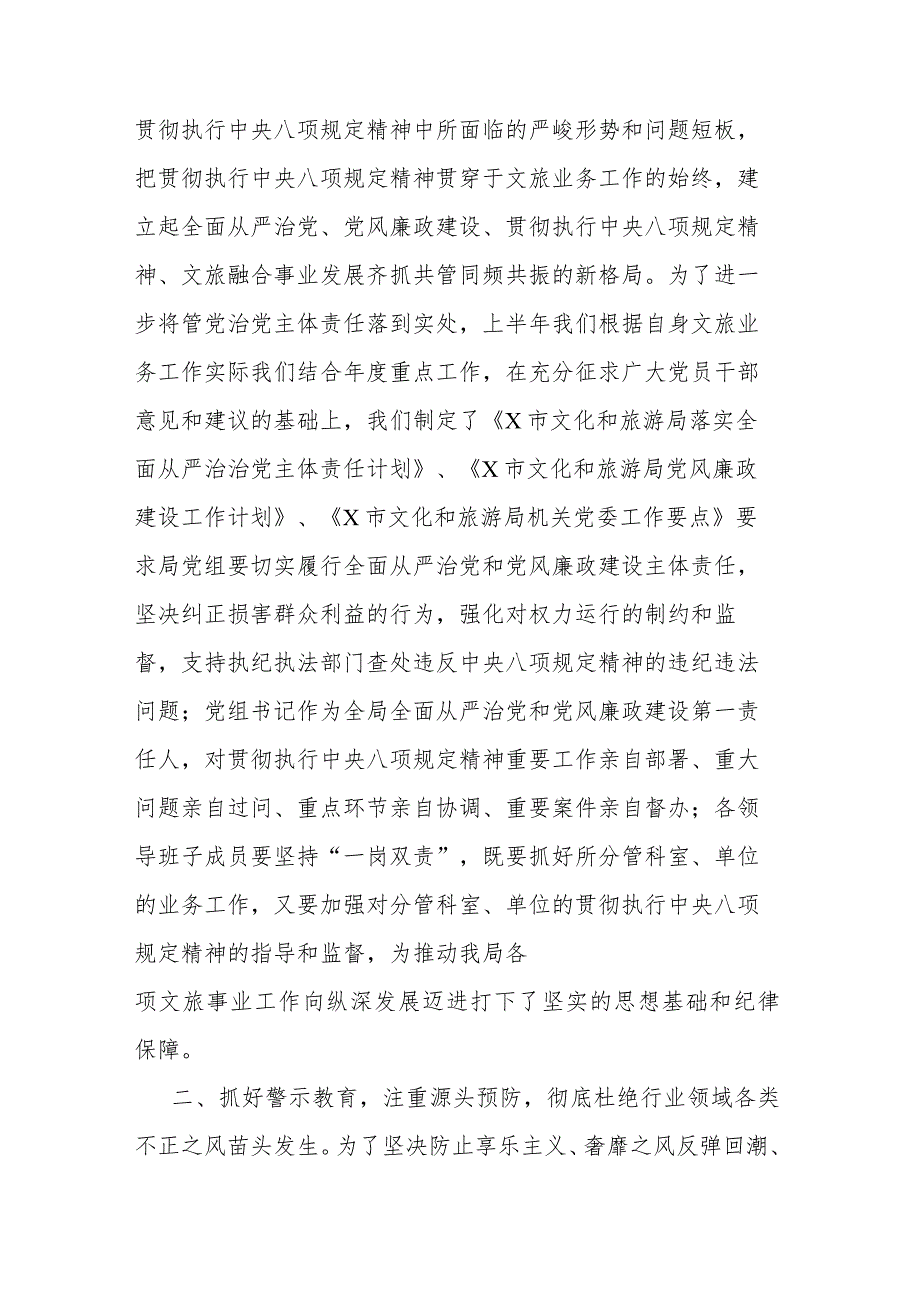 贯彻执行中央八项规定精神中所面临的严峻形势和问题短板，
把贯彻执行中央八项规定精神贯穿于文旅业务工作的始终，建
立起全面从严治党、党风廉政建设、贯彻执行中央八项规定精
神、文旅融合事业发展齐抓共管同频共振的新格局。为了进一
步将管党治党主体责任落到实处，上半年我们根据自身文旅业
务工作实际我们结合年度重点工作，在充分征求广大党员干部
意见和建议的基础上，我们制定了《X 市文化和旅游局落实全
面从严治治党主体责任计划》、《X 市文化和旅游局党风廉政
建设工作计划》、《X 市文化和旅游局机关党委工作要点》要
求局党组要切实履行全面从严治党和党风廉政建设主体责任，
坚决纠正损害群众利益的行为，强化对权力运行的制约和监
督，支持执纪执法部门查处违反中央八项规定精神的违纪违法
问题；党组书记作为全局全面从严治党和党风廉政建设第一责
任人，对贯彻执行中央八项规定精神重要工作亲自部署、重大
问题亲自过问、重点环节亲自协调、重要案件亲自督办；各领
导班子成员要坚持“一岗双责”，既要抓好所分管科室、单位
的业务工作，又要加强对分管科室、单位的贯彻执行中央八项
规定精神的指导和监督，为推动我局各
项文旅事业工作向纵深发展迈进打下了坚实的思想基础和纪律
保障。
二、抓好警示教育，注重源头预防，彻底杜绝行业领域各类
不正之风苗头发生。为了坚决防止享乐主义、奢靡之风反弹回潮、